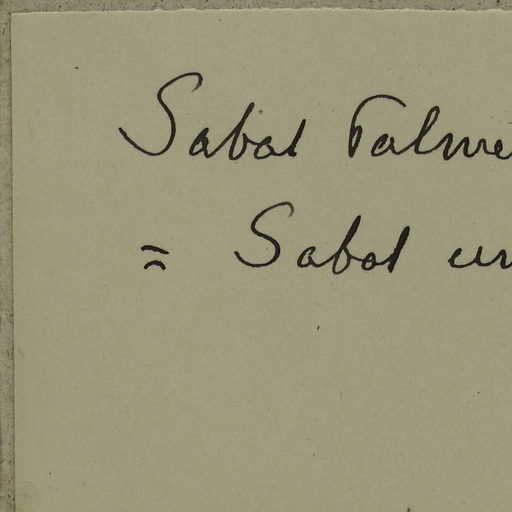 Sabal Palme
= Sabal un